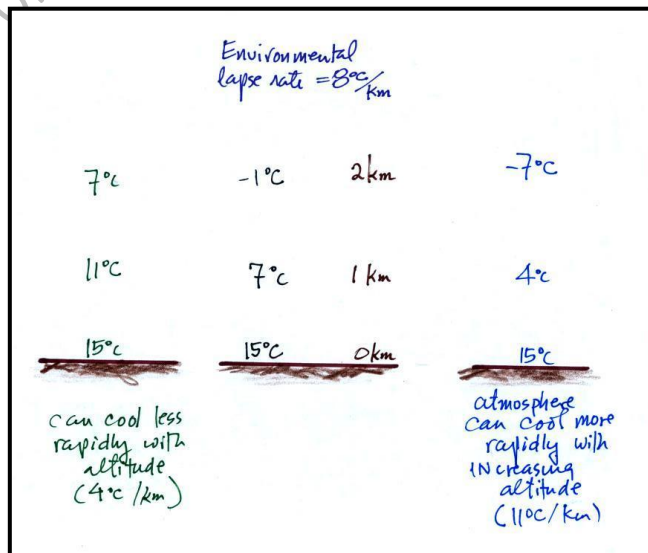 Environmental
lapse rate = 8°C/km
7°C -1°C 2km -7°C
11°C 7°C 1 km 4°C
15°C 15°C 0km 15°C
can cool less
rapidly with
altitude
(4°C/km)
atmosphere
can cool more
rapidly with
INcreasing
altitude
(11°C/km)